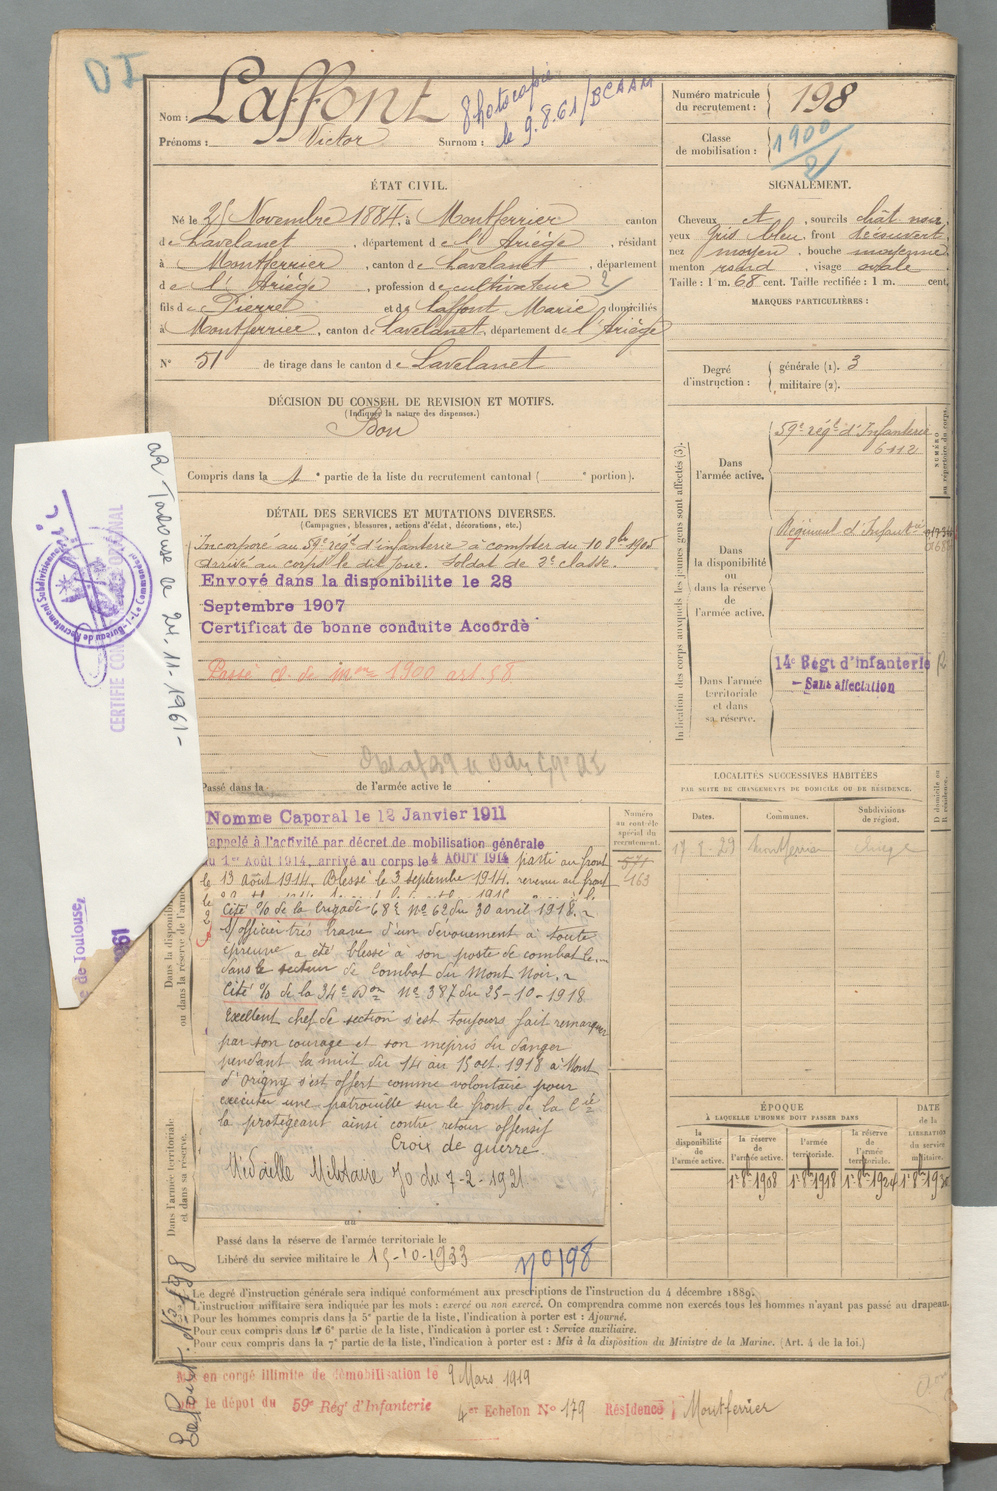 DI
Nom : Laffont
Prénoms : Victor Surnom :
Photocopie
le 9.8.61/BCAAM
Numéro matricule
du recrutement : 198
Classe
de mobilisation : 1900/2
ÉTAT CIVIL.
Né le 25 Novembre 1884, à Montferrier canton
de Lavelanet, département de l'Ariège, résidant
à Montferrier, canton de Lavelanet, département
de l'Ariège, profession de cultivateur
fils de Pierre et de Laffont Marie domiciliés
à Montferrier, canton de Lavelanet, département de l'Ariège
N° 51 de tirage dans le canton de Lavelanet
SIGNALEMENT.
Cheveux et, sourcils chât. noir,
yeux gris bleu, front découvert,
nez moyen, bouche moyenne,
menton rond, visage ovale
Taille : 1 m. 68 cent. Taille rectifiée : 1 m. cent.
MARQUES PARTICULIÈRES :
Degré
d'instruction :
générale (1). 3
militaire (2).
DÉCISION DU CONSEIL DE REVISION ET MOTIFS.
(Indiquer la nature des dispenses.)
Bon
Compris dans la 1e partie de la liste du recrutement cantonal ( e portion).
DÉTAIL DES SERVICES ET MUTATIONS DIVERSES.
(Campagnes, blessures, actions d'éclat, décorations, etc.)
Incorporé au 59e régt d'infanterie à compter du 10 8bre 1905
arrivé au corps le dit jour. Soldat de 2e classe.
Envoyé dans la disponibilite le 28
Septembre 1907
Certificat de bonne conduite Accordè
Passé cl. de mon 1900 art. 58
Passé dans la de l'armée active le
Nomme Caporal le 12 Janvier 1911
rappelé à l'activité par décret de mobilisation générale
du 1er Août 1914, arrivé au corps le 4 AOUT 1914 parti au front
le 13 août 1914. Blessé le 3 septembre 1914. revenu au front
Cité %o de la brigade 68e No 62 du 30 avril 1918.
S/officier très brave d'un dévouement à toute
épreuve a été blessé à son poste de combat le...
dans le secteur de combat du Mont Noir.
Cité %o de la 34e Don No 387 du 25-10-1918
Excellent chef de section s'est toujours fait remarquer
par son courage et son mépris du danger
pendant la nuit du 14 au 15 oct. 1918 à Mont
d'Origny s'est offert comme volontaire pour
exécuter une patrouille sur le front de la Cie
la protégeant ainsi contre retour offensif
Croix de guerre
Médaille Militaire Jo du 7-2-1921
Passé dans la réserve de l'armée territoriale le
Libéré du service militaire le 15-10-1933
no 198
Numéro
au contrôle
spécial du
recrutement.
571
163
Dans la disponibilité
ou dans la réserve de l'armée
Dans l'armée territoriale
et dans sa réserve.
Indication des corps auxquels les jeunes gens sont affectés (3).
Dans
l'armée active.
59e régt d'Infanterie
6112
Dans
la disponibilité
ou
dans la réserve
de
l'armée active.
Régiment d'Infanterie
Dans l'armée
territoriale
et dans
sa réserve.
14e Régt d'infanterie
- Sans affectation
NUMÉRO
au répertoire du corps.
LOCALITÉS SUCCESSIVES HABITÉES
PAR SUITE DE CHANGEMENTS DE DOMICILE OU DE RÉSIDENCE.
Dates. Communes. Subdivisions
de région.
D domicile ou
R résidence.
Montferrier
ÉPOQUE
À LAQUELLE L'HOMME DOIT PASSER DANS
la
disponibilité
de
l'armée active.
la réserve
de
l'armée active.
l'armée
territoriale.
la réserve
de
l'armée
territoriale.
DATE
de la
LIBÉRATION
du service
militaire.
1r 8bre 1908 1r 8bre 1918 1r 8bre 1924 1r 8bre 1930
Le degré d'instruction générale sera indiqué conformément aux prescriptions de l'instruction du 4 décembre 1889.
L'instruction militaire sera indiquée par les mots : exercé ou non exercé. On comprendra comme non exercés tous les hommes n'ayant pas passé au drapeau.
Pour les hommes compris dans la 5e partie de la liste, l'indication à porter est : Ajourné.
Pour ceux compris dans la 6e partie de la liste, l'indication à porter est : Service auxiliaire.
Pour ceux compris dans la 7e partie de la liste, l'indication à porter est : Mis à la disposition du Ministre de la Marine. (Art. 4 de la loi.)
Mis en congé illimité de démobilisation le 9 Mars 1919
par le dépot du 59e Rég' d'Infanterie 4er Echelon No 179 Résidence : Montferrier
Laffont. No 198
Toulouse le 24-11-1961-
CERTIFIÉ CONFORME À L'ORIGINAL
Bureau de Recrutement Subdivisionnaire - Le Commandant
de Toulouse,